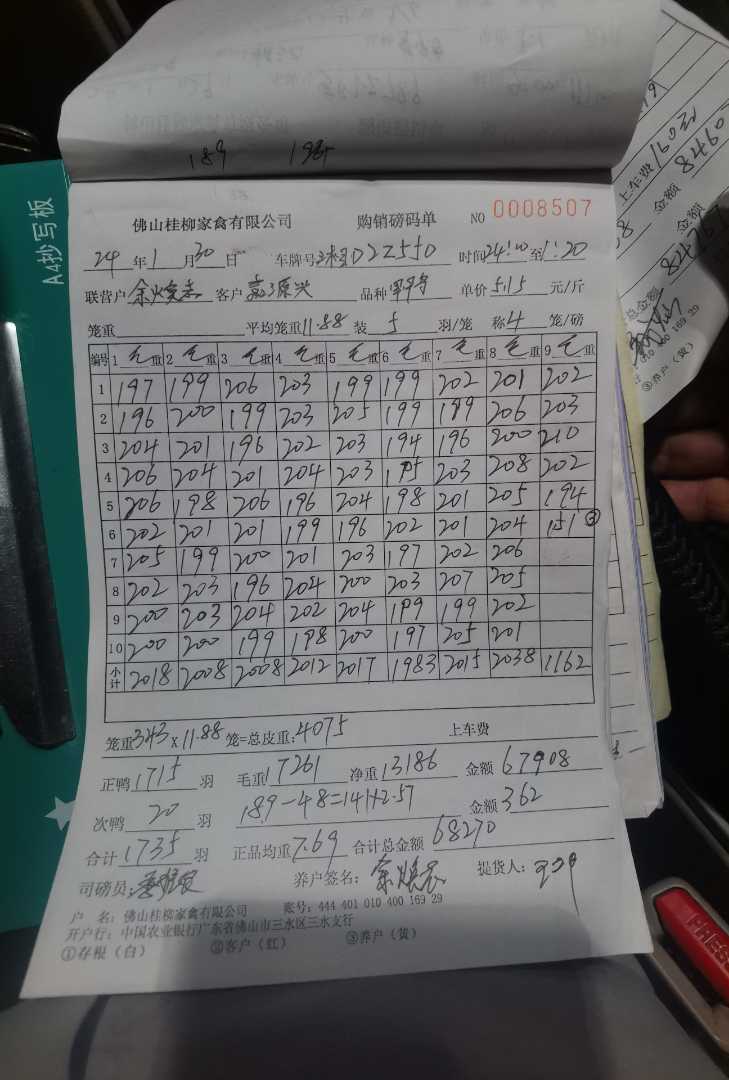 189 195
A4抄写板
佛山桂柳家禽有限公司 购销磅码单 NO 0008507
24年1月30日 车牌号 D2Z550 时间24:00至1:20
联营户 客户 品种 单价5.15元/斤
笼重 平均笼重11.88 装5羽/笼 称4笼/磅
编号 1毛重 2毛重 3毛重 4毛重 5毛重 6毛重 7毛重 8毛重 9毛重
1 197 199 206 203 199 199 202 201 202
2 196 200 199 203 205 199 199 206 203
3 204 201 196 202 203 194 196 200 210
4 206 204 201 204 203 195 203 208 202
5 206 198 206 196 204 198 201 205 194
6 202 201 201 199 196 202 201 204 151③
7 205 199 200 201 203 197 202 206
8 202 203 196 204 200 203 207 205
9 200 203 204 202 204 199 199 202
10 200 200 199 198 200 197 205 201
小计 2018 2008 2008 2012 2017 1983 2015 2038 1162
笼重343×11.88笼=总皮重:4075 上车费
正鸭1715羽 毛重17261 净重13186 金额67908
次鸭20羽 189-48=141×2.57 金额362
合计1735羽 正品均重7.69 合计总金额68270
司磅员: 养户签名: 提货人:
户 名:佛山桂柳家禽有限公司 账号:444 401 010 400 169 29
开户行:中国农业银行广东省佛山市三水区三水支行
①存根(白) ②客户(红) ③养户(黄)
上车费160元
金额 8460
金额
总金额
010 400 169 29
③养户(黄)